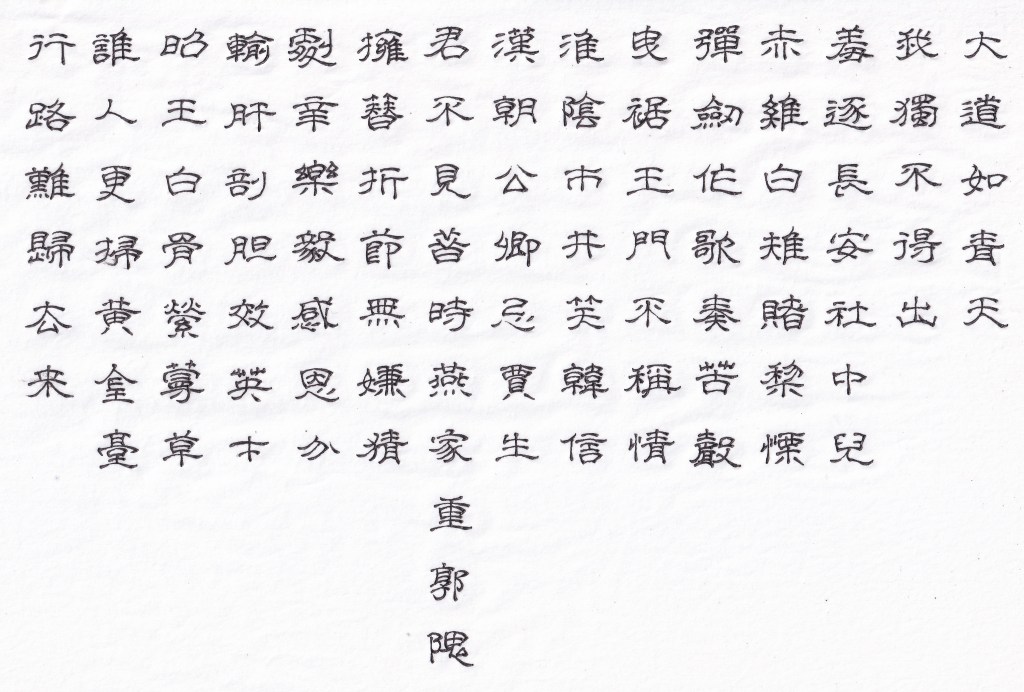 大道如青天
我獨不得出
羞逐長安社中兒
赤雞白雉賭棃慄
彈劍作歌奏苦聲
曳裾王門不稱情
淮陰市井笑韓信
漢朝公卿忌賈生
君不見昔時燕家重郭隗
擁篲折節無嫌猜
劇辛樂毅感恩分
輸肝剖胆效英才
昭王白骨縈蔓草
誰人更掃黄金臺
行路難歸去来